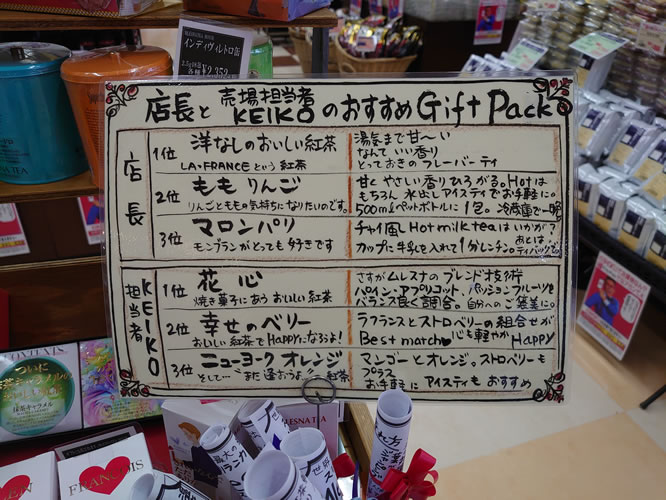 インディヴィレトロ缶
店長と 売場担当者 KEIKO のおすすめ Gift Pack
店長
1位 洋なしのおいしい紅茶
LA・FRANCE という 紅茶
湯気まで甘〜い
なんて いい香り
とっておきの フレーバーティ
2位 ももりんご
りんごとももの気持ちになりたいのです。
甘く やさしい香りひろがる。Hotは
もちろん 水出しアイスティでお手軽に。
500mlペットボトルに 1包。冷蔵庫で一晩
3位 マロンパリ
モンブランがとっても 好きです
チャイ風 Hot milk tea はいかが?
カップに牛乳を入れて1分レンチン。あとは、ティバックで。
担当者 KEIKO
1位 花心
焼き菓子にあう おいしい紅茶
さすがムレスナの ブレンド技術
パイン・アプリコット、パッションフルーツを
バランス良く調合。自分へのご褒美に。
2位 幸せのベリー
おいしい紅茶で Happyになろうよ!
ラフランスとストロベリーの組合せが
Best match 心も軽やか Happy
3位 ニューヨーク オレンジ
そして…"また逢おうよ" 紅茶
マンゴーとオレンジ。ストロベリーも
プラス
お手軽に アイスティも おすすめ
ついに
抹茶キャラメル
FRANCHIS